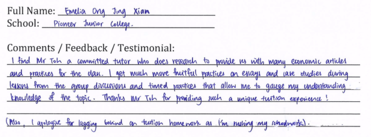 Full Name: Emelia Ong Jing Xian
School: Pioneer Junior College.
Comments / Feedback / Testimonial:
I find Mr Toh a committed tutor who does research to provide us with many economic articles
and practices for the class. I get much more fruitful practices on essays and case studies during
lessons from the group discussions and timed practices that allow me to gauge my understanding
knowledge of the topic. Thanks Mr Toh for providing such a unique tuition experience!
(Also, I apologise for lagging behind on tuition homework as I'm rushing my )